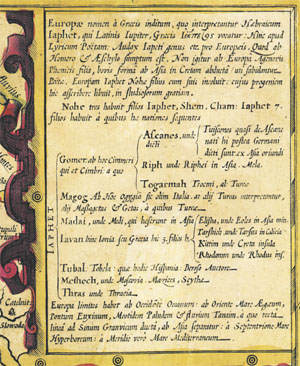 Europæ nomen à Græcis inditum, quo interpretantur Hebraicum
Iaphet, qui Latinis Iupiter, Græcis vocatur: Hinc apud
Lyricum Poëtam: Audax Iapeti genus etc pro Europeis. Quod ab
Homero & Æschylo sumptum est. Non igitur ab Europa Agenoris
Phenicis filia, bovis forma ab Asia in Cretam abducta: ut fabulantur.
Dicta. Cæterum Iaphet Nohe filius cum sit: invabit: cujus progeniem
hic ascribere: libuit, in studiosorum gratiam.
Nohe tres habuit filios Iaphet, Shem, Cham: Iaphet 7.
filios habuit à quibus hæ nationes sequentes
Ascanes, unde dicti
Tuiscones quasi de Ascanes
nati hi postea Germani
dicti sunt ex Asia oriundi
Gomer, ab hoc Cimmeri
qui et Cimbri a quo
Riph unde Riphei in Asia. Mela.
Togarmah Trocmi, ab Turcæ
Magog Ab Hoc Goggia sic olim Italia. ac alij Turcas interpretantur,
alij Massagetas & Getas, à quibus Turcæ
Madai, unde Medi, qui hæserunt in Asia
Iavan hinc Ionia seu Græcia huic 3. filios
Elisha, unde Eoles in Asia min.
Tarshish unde Tarsis in Cilicia
Kittim unde Creta insula
Rhodanim unde Rhodus ins.
IAPHET
Tubal. Tobela: quæ hodie Hispania. Beroso Auctore.
Meshech, unde Mosovia Mazices, Scytha.
Thras unde Thracia.
Europa limites habet ab Occidente Oceanum: ab Oriente Mare Ægeum,
Pontum Euxinum, Meotidem Paludem & fluvium Tanaim, à quo recta
linea ad Sinum Granvicum ducta, ab Asia separatur: à Septentrione Mare
Hyperboreum: à Meridie verò Mare Mediterraneum.